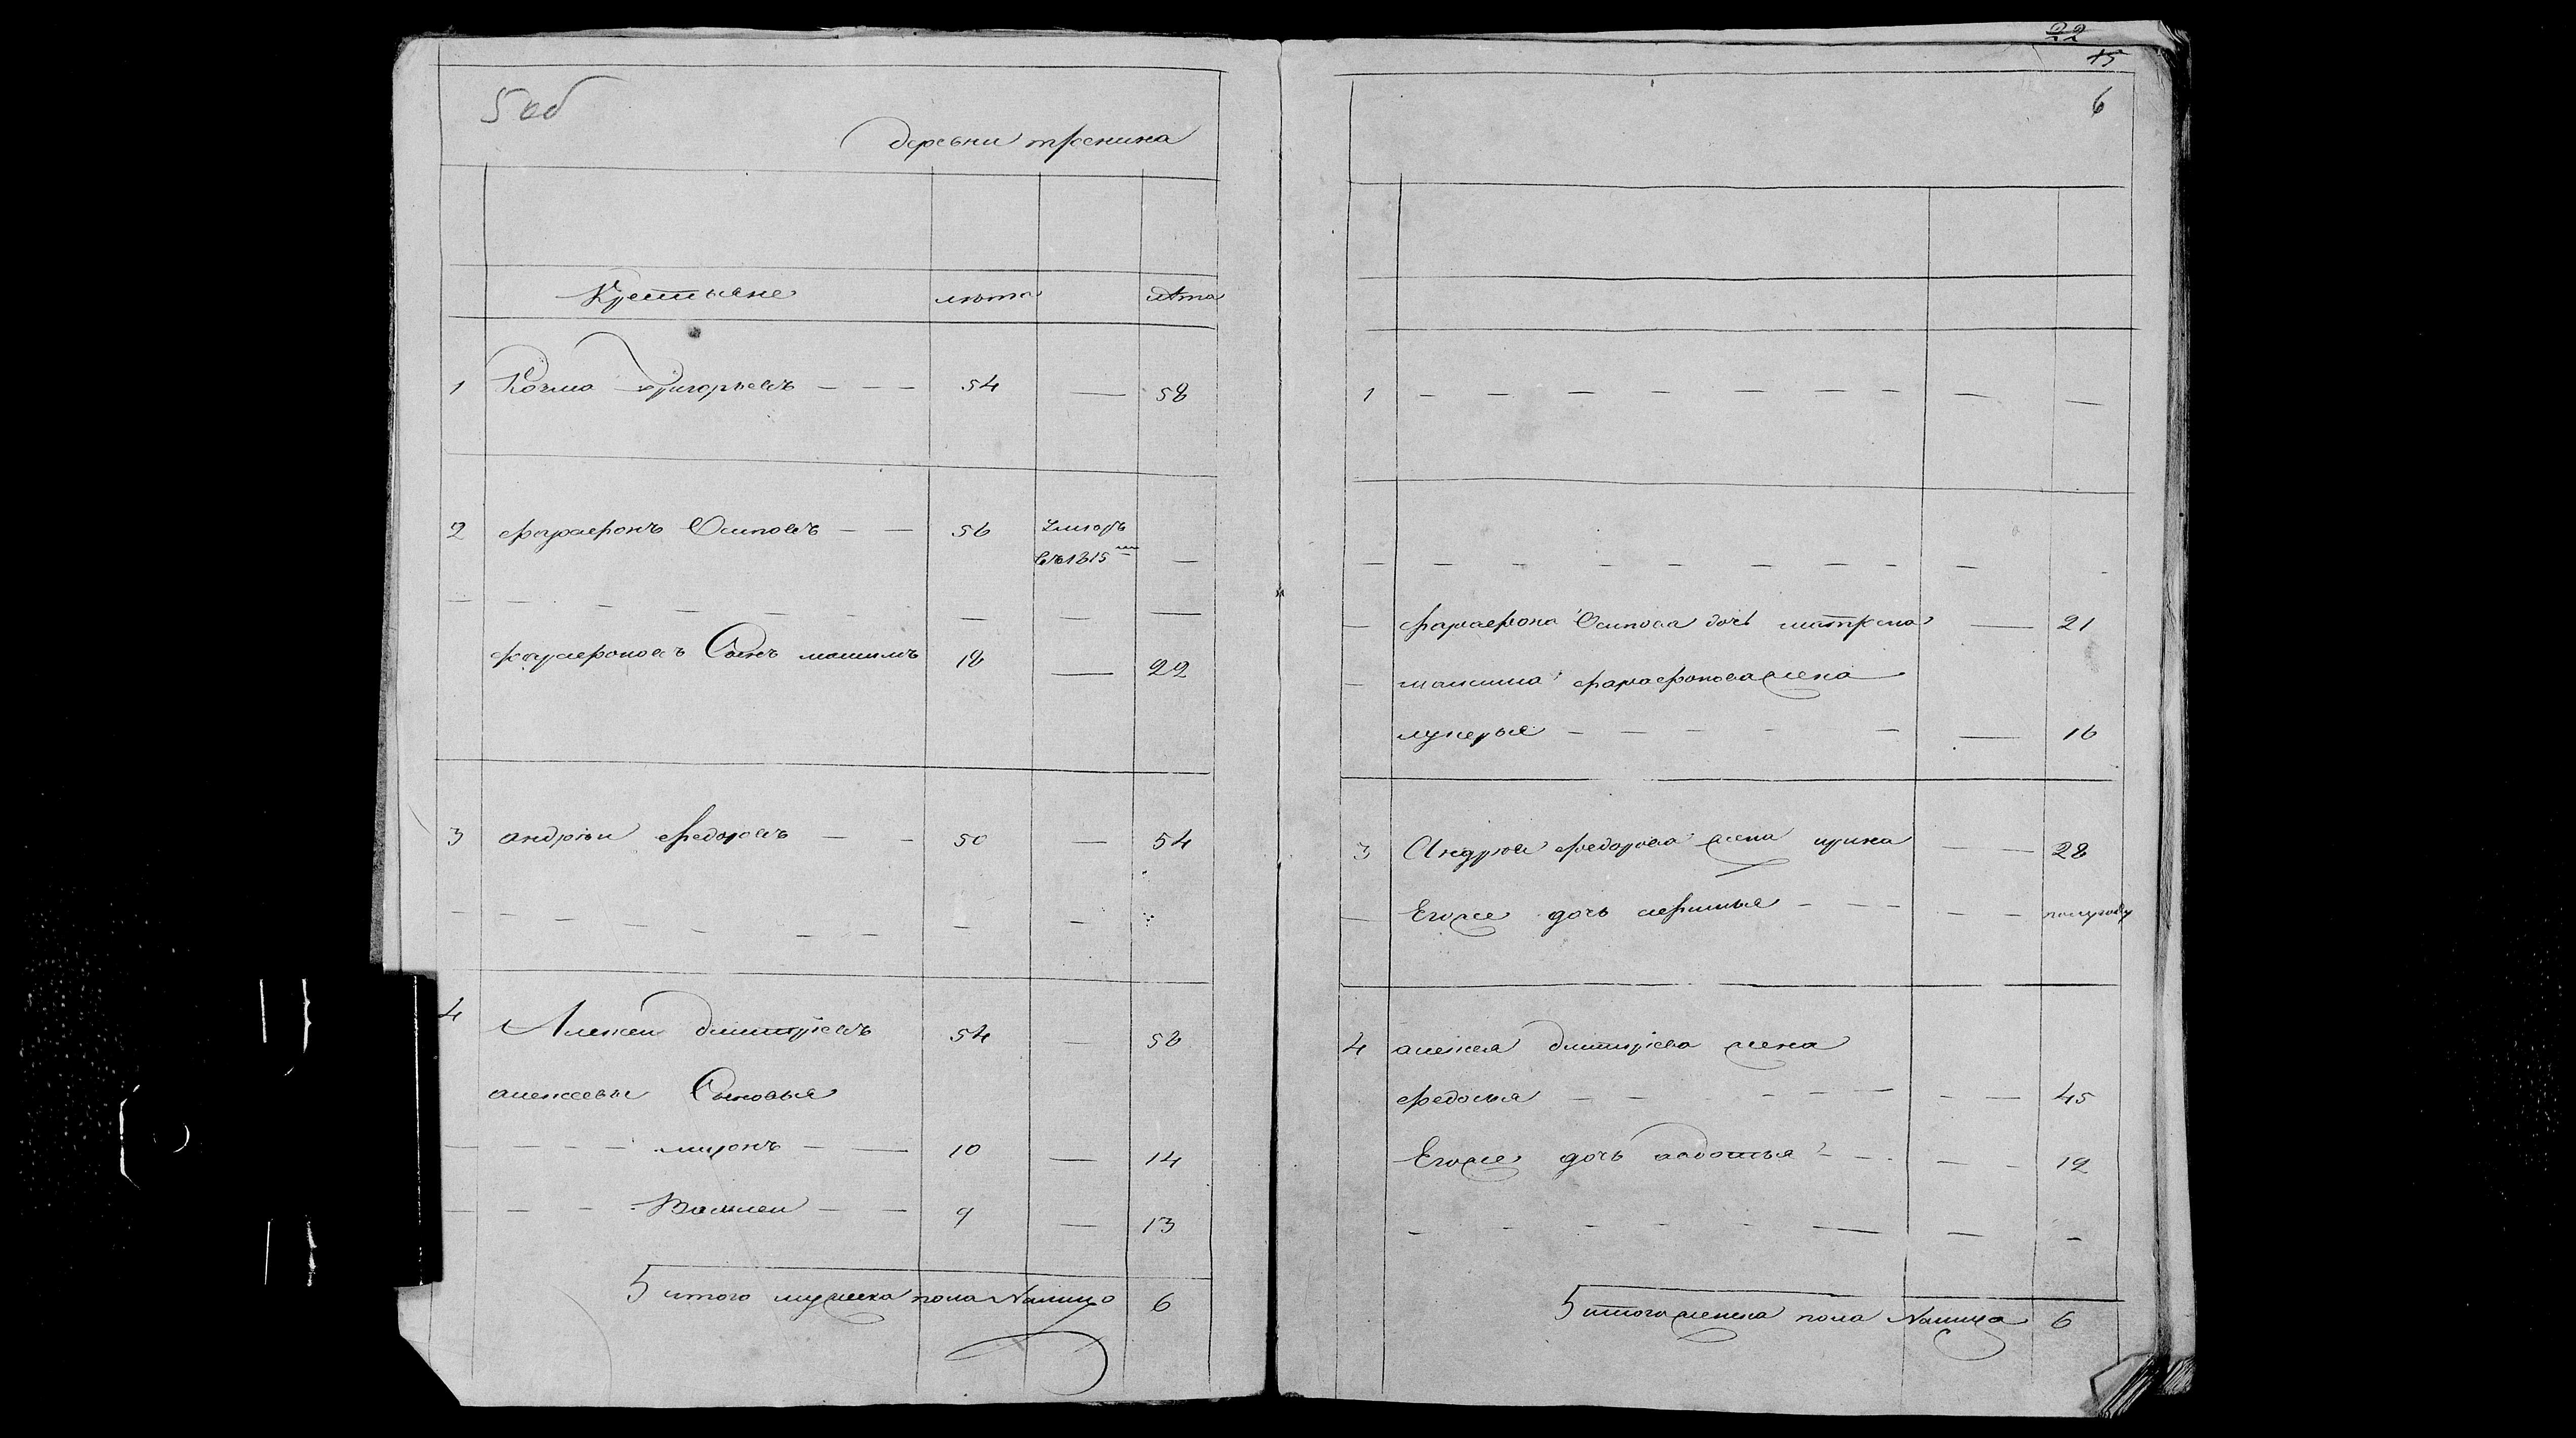 5 об
деревни тренина
Крестьяне лѣта лѣта
1 Козма Григорьевъ — — — 54 — 58
2 фарафонъ Осиповъ — — 56 Умерь
въ 1815 —
фарафоновъ Сынъ максимъ 18 — 22
3 андрѣи федоровъ — — 50 — 54
4 Алексеи дмитріевъ 54 — 58
алексеевы Сыновья
миронъ — — 10 — 14
Василеи — — 9 — 13
5 итого мужеска пола Налицо 6
22
15
6
1 — — — — — — — — —
фарафона Осипова дочь матрена — 21
максима фарафонова жена
лукерья — — — — — — 16
3 Андрѣя федорова жена ирина — — 28
Егоже дочь — — — — — полугоду
4 алексея дмитріева жена
федосья — — — — — — — — 45
Егоже дочь авдотья — — — — 12
5 итого женска пола Налицо 6